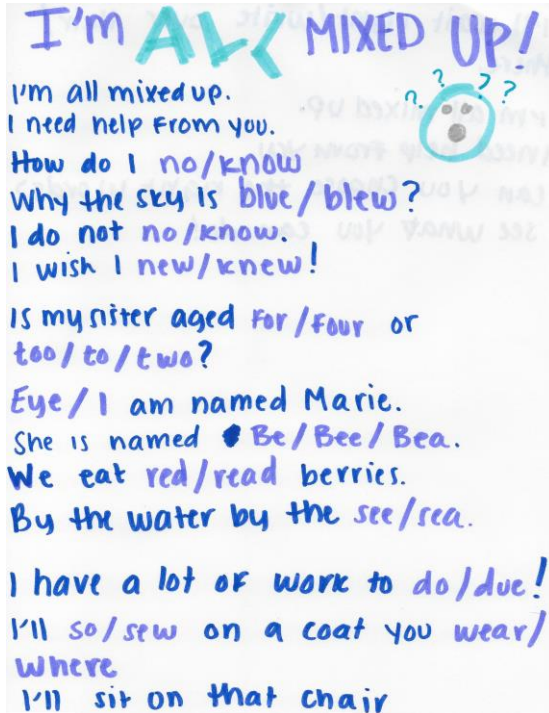 I'M ALL MIXED UP!
? ? ? ?
I'm all mixed up.
I need help from you.
How do I no/know
Why the sky is blue/blew?
I do not no/know.
I wish I new/knew!
Is my siter aged for/four or
too/to/two?
Eye/I am named Marie.
She is named Be/Bee/Bea.
We eat red/read berries.
By the water by the see/sea.
I have a lot of work to do/due!
I'll so/sew on a coat you wear/
where
I'll sit on that chair